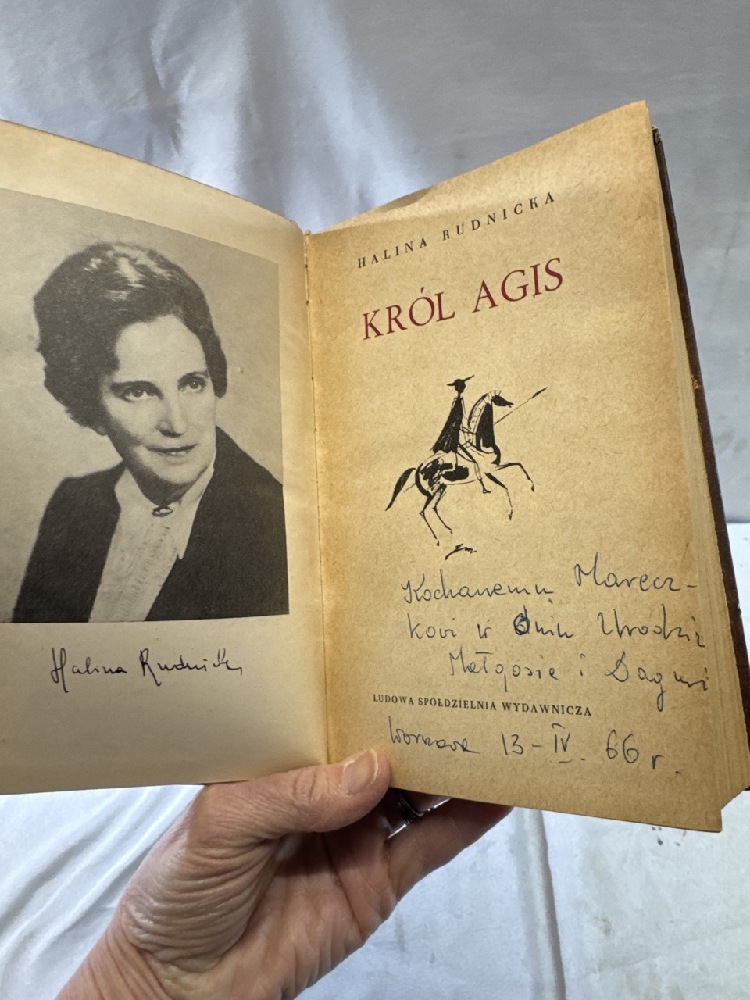 Halina Rudnicka
HALINA RUDNICKA
KRÓL AGIS
Kochanemu Marecz-
kowi w dniu Urodzin
Małgosia i
LUDOWA SPÓŁDZIELNIA WYDAWNICZA
Warszawa 13-IV. 66 r.